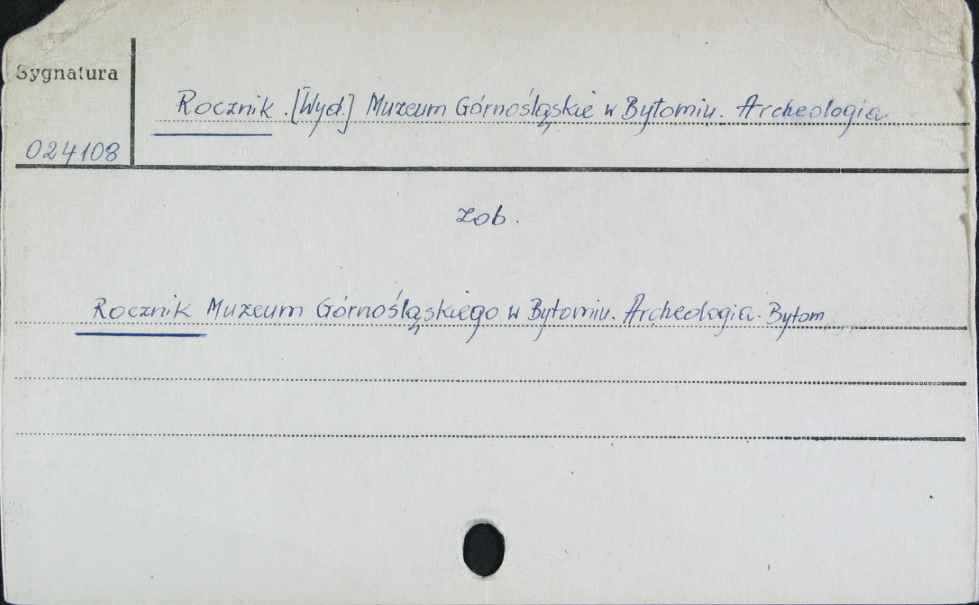 Sygnatura
Rocznik. [Wyd.] Muzeum Górnośląskie w Bytomiu. Archeologia
024108
zob.
Rocznik Muzeum Górnośląskiego w Bytomiu. Archeologia. Bytom